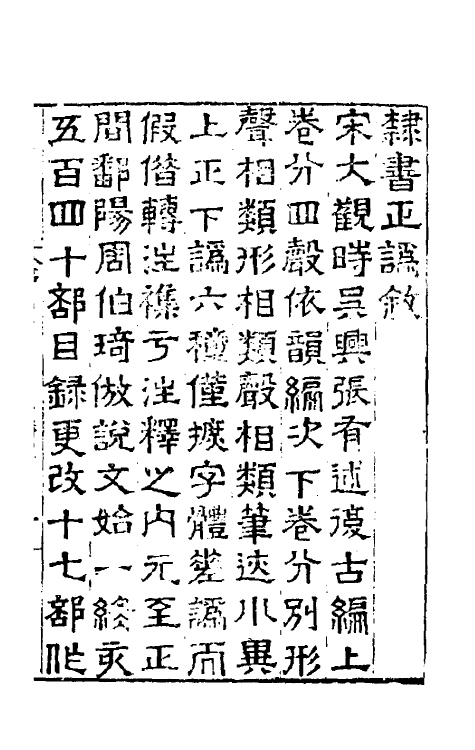 隸書正譌敘
宋大觀時吳興張有述復古編上
卷分四聲依韻編次下卷分別形
聲相類形相類聲相類筆迹小異
上正下譌六種僅據字體差譌而
假借轉注襍亏注釋之内元至正
間鄱陽周伯琦倣說文始一終亥
五百四十部目録更改十七部作